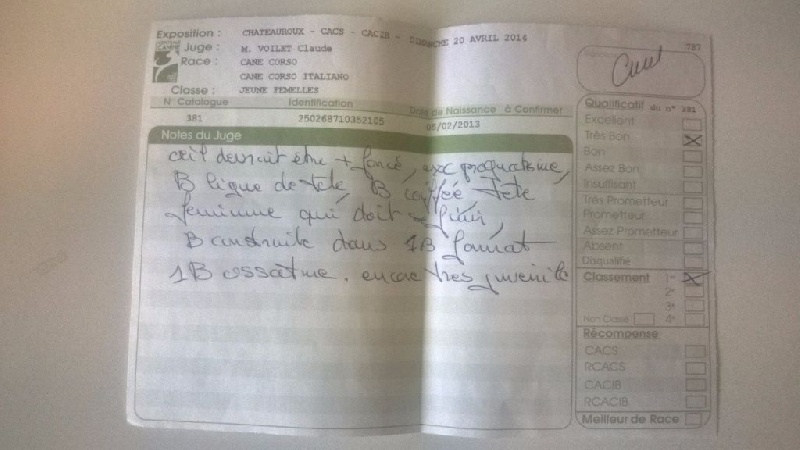 Exposition : CHATEAUROUX - CACS - CACIB - DIMANCHE 20 AVRIL 2014
787
Juge : M. VOILET Claude
Race : CANE CORSO
CANE CORSO ITALIANO
Classe : JEUNE FEMELLES
N° Catalogue Identification Date de Naissance à Confirmer
381 250268710352105 06/02/2013
Notes du Juge
œil devrait être + foncé, prognatisme,
B ligne de tête, B coiffée, tête
feminine qui doit se finir,
B construite dans 1B format
1B ossature. encore très juvenile
Qualificatif du n° 381
Excellent
Très Bon
Bon
Assez Bon
Insuffisant
Très Prometteur
Prometteur
Assez Prometteur
Absent
Disqualifié
Classement 1°
2°
3°
Non Classé 4°
Récompense
CACS
RCACS
CACIB
RCACIB
Meilleur de Race